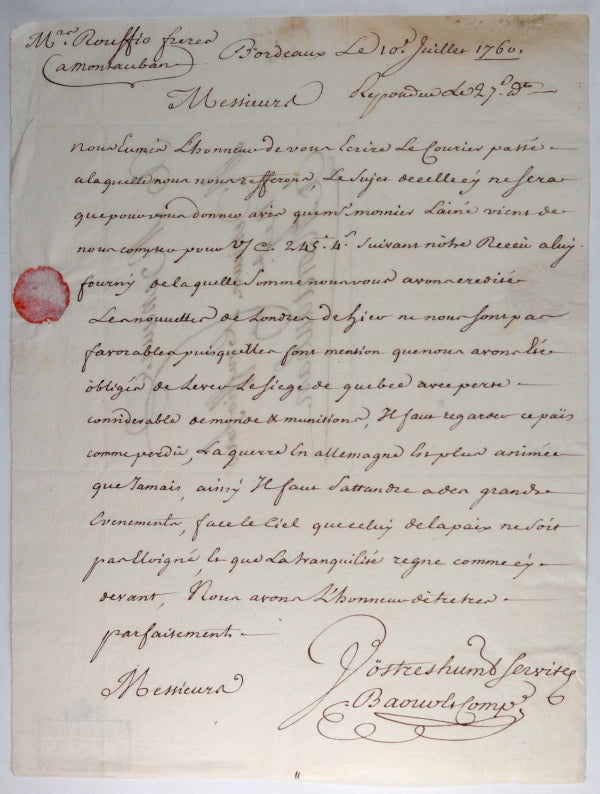 Mrs. Rouffio freres
a montauban
Bordeaux Le 10e. Juillet 1760.
Messieurs
Repondue Le 27e. Do
nous Eumes L'honneur de vous Ecrire Le Courier passé
a laquelle nous nous refferons, Le Sujet decelle cy ne sera
que pour vous donner avis que mr. monier Lainé vient de
nous compter pour V/C. 245. 4s. Suivant nôtre Receü a luy
fourny de laquelle Somme nous vous avons credités
Les nouvelles de Londres de hier ne nous sont pas
favorables puisquelles font mention que nous avons Eté
öbligés de Lever Le siege de quebec avec perte
considerable de monde & munitions, Il faut regarder ce païs
comme perdu, La guerre En allemagne Est plus animée
que Jamais, ainsy Il faut Sattandre a des grands
Evenements, face Le Ciel que celuy de la paix ne soit
pas Eloigné, Et que La tranquilité regne comme cy
devant, Nous avons L'honneur dètre tres
parfaitement
Messieurs
Vös tres humb Servits
Baour & Compe.